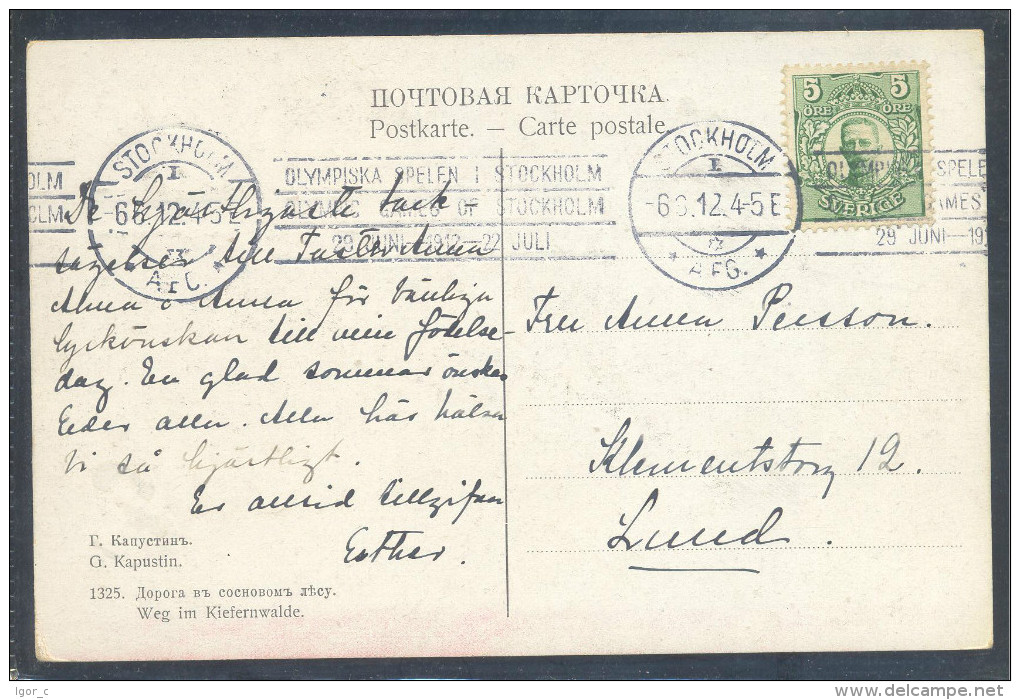 ПОЧТОВАЯ КАРТОЧКА.
Postkarte. — Carte postale.
5 5
ÖRE ÖRE
SVERIGE
STOCKHOLM
I
-6 6.12.4-5 E
AFG.
OLM
OLM
OLYMPISKA SPELEN I STOCKHOLM
OLYMPIC GAMES OF STOCKHOLM
29 JUNI—1912—22 JULI
STOCKHOLM
I
-6 6.12.4-5 E
AFG.
OLYMPI SPELE
AMES
29 JUNI—19
hjärtligaste tack
till Faster Anna
Alma o Anna för vänliga
lyckönskan till min födelse-
dag. En glad sommar önskas
Eder alla. Alla här hälsa
så hjärtligt.
Er alltid tillgifna
Esther.
Fru Anna Persson.
Klementstorg 12.
Lund.
Г. Капустинъ.
G. Kapustin.
1325. Дорога въ сосновомъ лѣсу.
Weg im Kiefernwalde.
Igor_c
delcampe.net